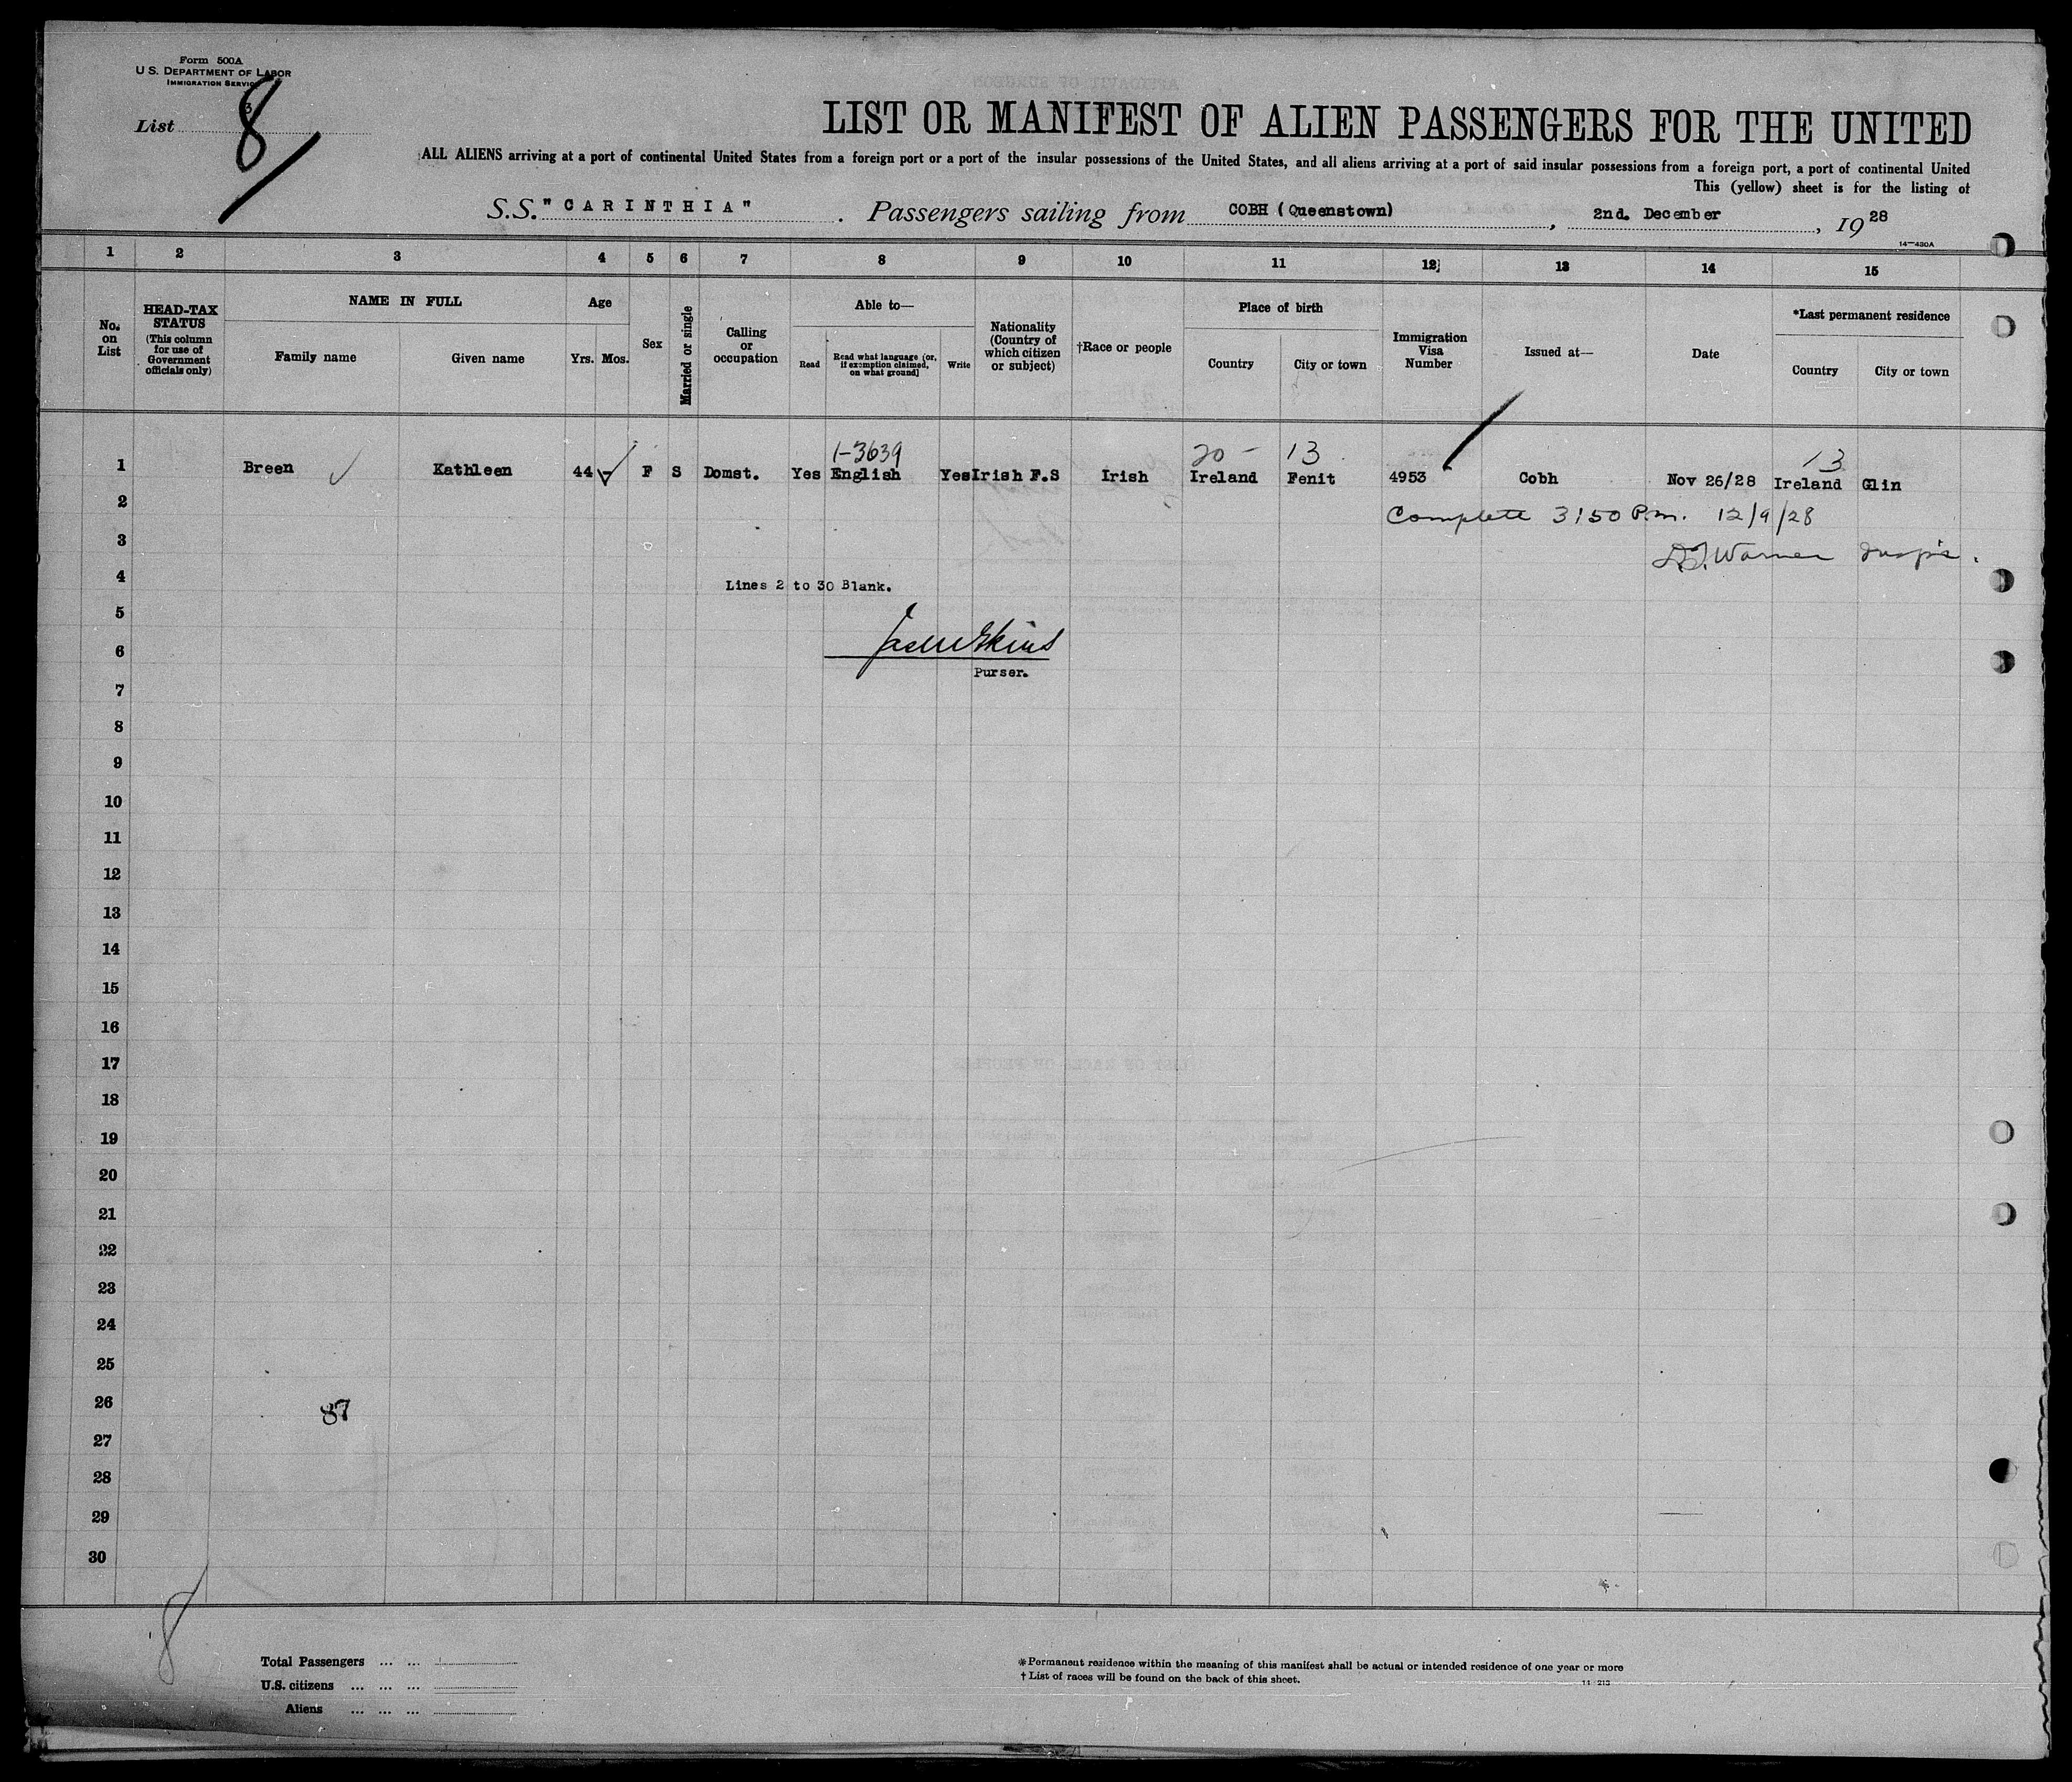 Form 500A
U.S. DEPARTMENT OF LABOR
IMMIGRATION SERVICE
List 3
8
LIST OR MANIFEST OF ALIEN PASSENGERS FOR THE UNITED
ALL ALIENS arriving at a port of continental United States from a foreign port or a port of the insular possessions of the United States, and all aliens arriving at a port of said insular possessions from a foreign port, a port of continental United
This (yellow) sheet is for the listing of
S.S. "CARINTHIA". Passengers sailing from COBH (Queenstown), 2nd. December, 1928
14—430A
1 2 3 4 5 6 7 8 9 10 11 12 13 14 15
No. on List
HEAD-TAX STATUS
(This column for use of Government officials only)
NAME IN FULL
Family name Given name
Age
Yrs. Mos.
Sex
Married or single
Calling or occupation
Able to—
Read Read what language (or, if exemption claimed, on what ground) Write
Nationality (Country of which citizen or subject)
†Race or people
Place of birth
Country City or town
Immigration Visa Number
Issued at—
Date
*Last permanent residence
Country City or town
1-3639 20 - 13 13
1 Breen Kathleen 44 - F S Domst. Yes English Yes Irish F.S Irish Ireland Fenit 4953 Cobh Nov 26/28 Ireland Glin
2 Complete 3:50 P.m. 12/9/28
3 Warner
4 Lines 2 to 30 Blank.
5
6
Purser.
7
8
9
10
11
12
13
14
15
16
17
18
19
20
21
22
23
24
25
26 87
27
28
29
30
8
Total Passengers ... ...
U.S. citizens ... ... ...
Aliens ... ... ...
*Permanent residence within the meaning of this manifest shall be actual or intended residence of one year or more
† List of races will be found on the back of this sheet.
11 213